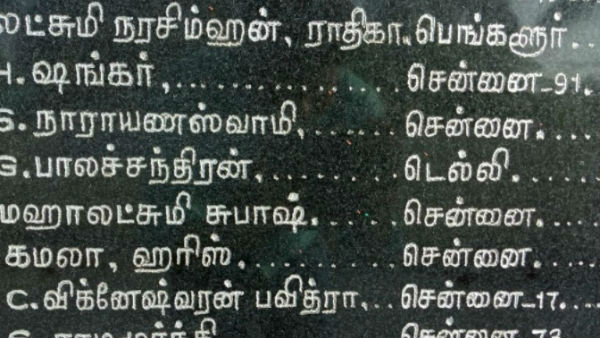 லட்சுமி நரசிம்ஹன், ராதிகா, பெங்களூர்..
H. ஷங்கர்,................சென்னை-91.
G. நாராயணஸ்வாமி,......சென்னை....
G.பாலச்சந்திரன்,..........டெல்லி....
மஹாலட்சுமி சுபாஷ்.......சென்னை....
கமலா, ஹரிஸ்,............சென்னை....
C.விக்னேஷ்வரன் பவித்ரா,..சென்னை-17...
சென்னை-73